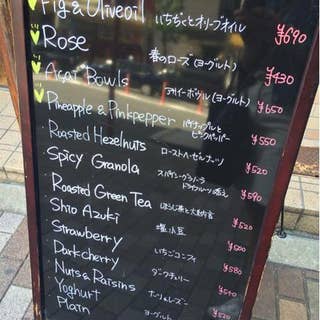 Fig & Oliveoil いちじくとオリーブオイル ¥690
Rose 春のローズ(ヨーグルト) ¥430
Açaí Bowls アサイーボウル(ヨーグルト) ¥650
Pineapple & Pinkpepper パイナップルとピンクペッパー ¥550
Roasted Hezelnuts ローストヘーゼルナッツ ¥520
Spicy Granola スパイシーグラノーラ ドライフルーツ添え ¥590
Roasted Green Tea ほうじ茶と大納言 ¥520
Shio Azuki 塩小豆
Strawberry いちごコンフィ ¥500
Darkcherry ダークチェリー ¥580
Nuts & Raisins ナッツ&レーズン
Yoghurt ヨーグルト ¥520
Plain